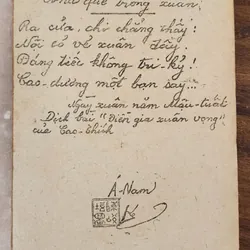 Nhà quê trông xuân.
Ra cửa, chi chẳng thấy!
Nội cỏ vẻ xuân đầy.
Đáng tiếc không tri-kỷ!
Cao-dương một bạn say...
Ngày xuân năm Mậu-tuất
Dịch bài "Điền gia xuân vọng"
của Cao-Thích
Á-Nam